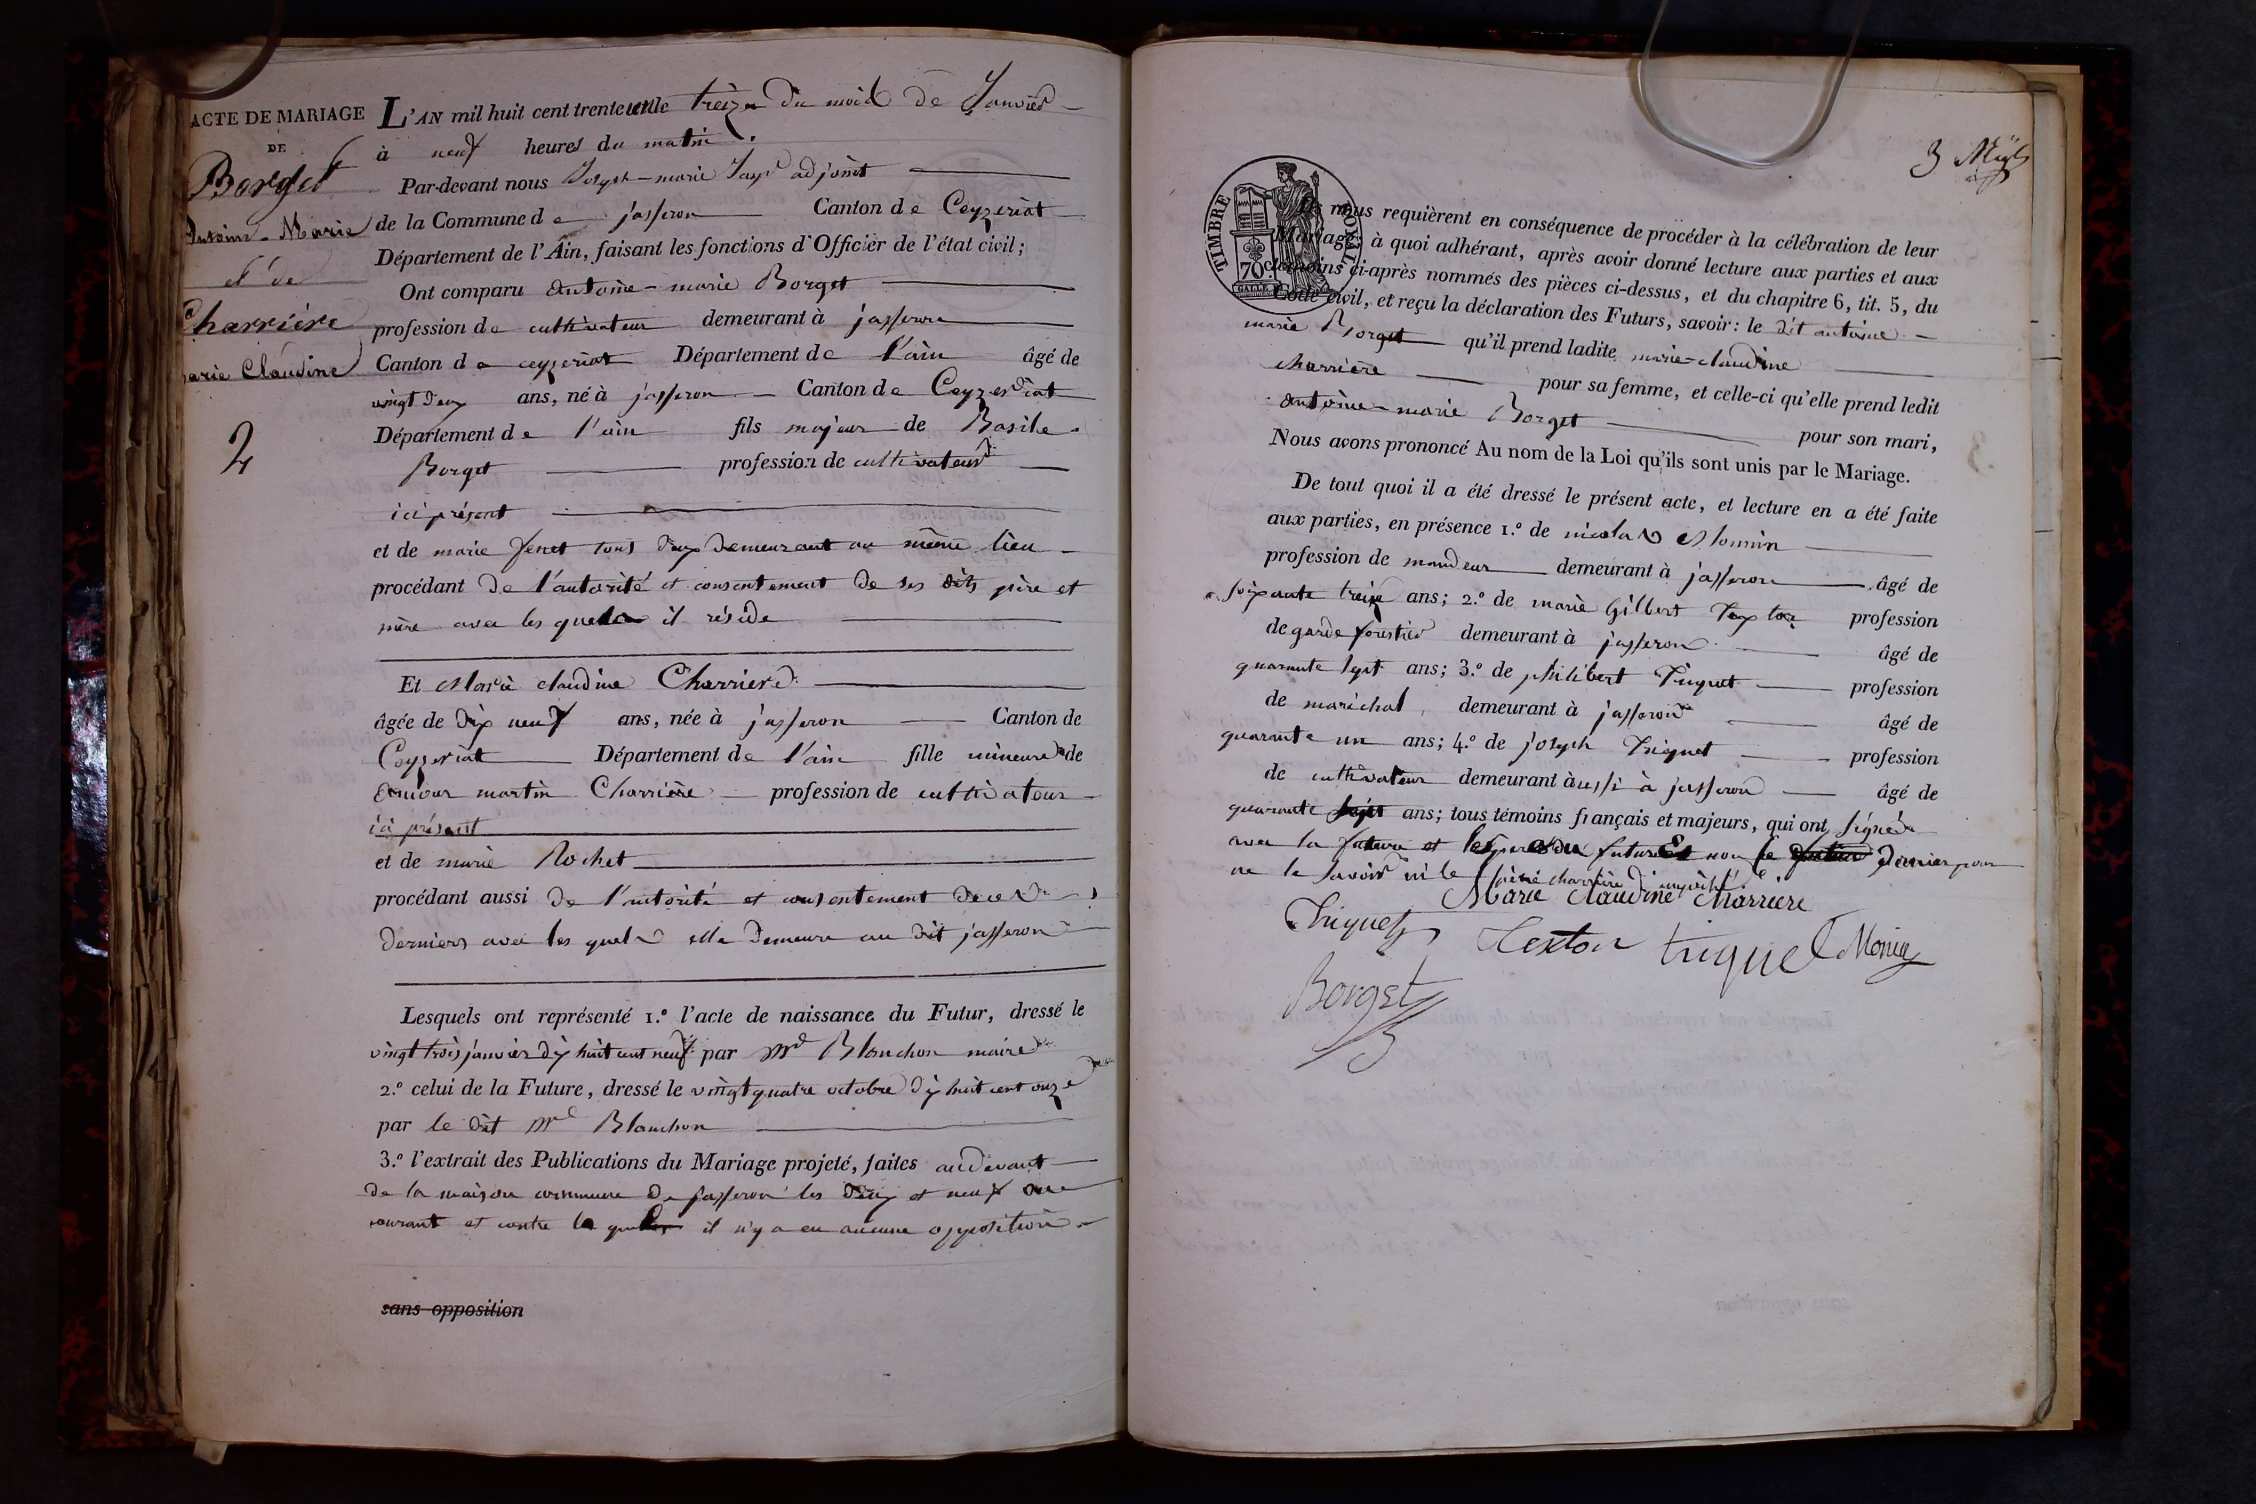 ACTE DE MARIAGE
DE
Borget
Antoine-Marie
et de
Charrière
Marie Claudine
2
L'AN mil huit cent trente un le treize du mois de Janvier
à neuf heures du matin.
Par-devant nous Joseph-marie adjoint
de la Commune de jasseron Canton de Ceyzeriat
Département de l'Ain, faisant les fonctions d'Officier de l'état civil;
Ont comparu antoine-marie Borget
profession de cultivateur demeurant à jasseron
Canton de ceyzeriat Département de l'ain âgé de
vingt deux ans, né à jasseron Canton de Ceyzeriat
Département de l'ain fils majeur de Basile
Borget profession de cultivateur
ici présent
et de marie fenet tous deux demeurant au même lieu
procédant de l'autorité et consentement de ses dits père et
mère avec les quels il réside
Et Marie claudine Charriere
âgée de dix neuf ans, née à jasseron Canton de
Ceyzeriat Département de l'ain fille mineure de
amour martin Charrière profession de cultivateur
ici présent
et de marie Rochet
procédant aussi de l'autorité et consentement de ces
derniers avec les quels elle demeure au dit jasseron
Lesquels ont représenté 1.º l'acte de naissance du Futur, dressé le
vingt trois janvier dix huit cent neuf par Mr Blanchon maire
2.º celui de la Future, dressé le vingt quatre octobre dix huit cent onze
par le dit Mr Blanchon
3.º l'extrait des Publications du Mariage projeté, faites au devant
de la maison commune de jasseron les deux et neuf du
courant et contre les quelles il n'y a eu aucune opposition
sans opposition
3
TIMBRE ROYAL
70c
Ils nous requièrent en conséquence de procéder à la célébration de leur
Mariage; à quoi adhérant, après avoir donné lecture aux parties et aux
témoins ci-après nommés des pièces ci-dessus, et du chapitre 6, tit. 5, du
Code civil, et reçu la déclaration des Futurs, savoir: le dit antoine
marie Borget qu'il prend ladite marie-claudine
charrière pour sa femme, et celle-ci qu'elle prend ledit
antoine-marie Borget pour son mari,
Nous avons prononcé Au nom de la Loi qu'ils sont unis par le Mariage.
De tout quoi il a été dressé le présent acte, et lecture en a été faite
aux parties, en présence 1.º de nicolas Monnin
profession de mandeur demeurant à jasseron âgé de
soixante treize ans; 2.º de marie Gilbert Texton profession
de garde forestier demeurant à jasseron âgé de
quarante sept ans; 3.º de philibert Triquet profession
de maréchal demeurant à jasseron âgé de
quarante un ans; 4.º de joseph Triquet profession
de cultivateur demeurant aussi à jasseron âgé de
quarante sept ans; tous témoins français et majeurs, qui ont signé
avec la future et le père du futur Et non le dernier pour
ne le savoir ni le père charrière
Marie Claudine Charriere
Triquet Texton triquet Monin
Borget